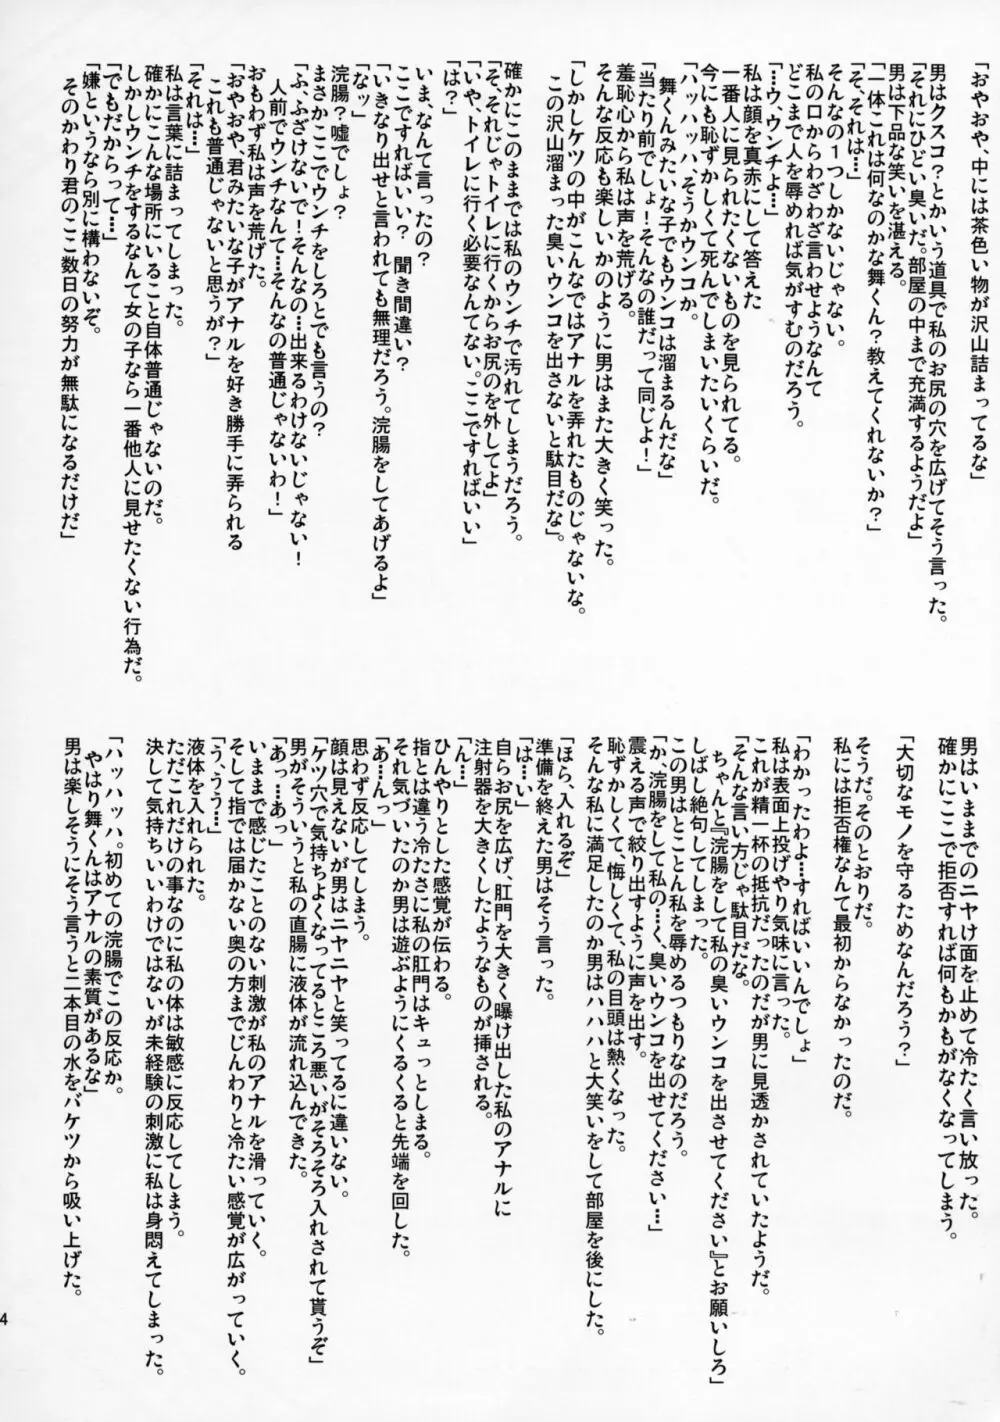 「おやおや、中には茶色い物が沢山詰まってるな」
男はクスコ?とかいう道具で私のお尻の穴を広げてそう言った。
「それにひどい臭いだ。部屋の中まで充満するようだよ」
男は下品な笑いを湛える。
「一体これは何なのかな舞くん?教えてくれないか?」
「そ、それは…」
そんなの1つしかないじゃない。
私の口からわざわざ言わせようなんて
どこまで人を辱めれば気がすむのだろう。
「…ウ、ウンチよ…」
私は顔を真赤にして答えた
一番人に見られたくないものを見られてる。
今にも恥ずかしくて死んでしまいたいくらいだ。
「ハッハッハ、そうかウンコか。
舞くんみたいな子でもウンコは溜まるんだな」
「当たり前でしょ!そんなの誰だって同じよ!」
羞恥心から私は声を荒げる。
そんな反応も楽しいかのように男はまた大きく笑った。
「しかしケツの中がこんなではアナルを弄れたものじゃないな。
この沢山溜まった臭いウンコを出さないと駄目だな」
確かにこのままでは私のウンチで汚れてしまうだろう。
「そ、それじゃトイレに行くからお尻のを外してよ」
「いや、トイレに行く必要なんてない。ここですればいい」
「は?」
いま、なんて言ったの?
ここですればいい? 聞き間違い?
「いきなり出せと言われても無理だろう。浣腸をしてあげるよ」
「なッ」
浣腸?嘘でしょ?
まさかここでウンチをしろとでも言うの?
「ふ、ふざけないで!そんなの…出来るわけないじゃない!
人前でウンチなんて…そんなの普通じゃないわ!」
おもわず私は声を荒げた。
「おやおや、君みたいな子がアナルを好き勝手に弄られる
これも普通じゃないと思うが?」
「それは…」
私は言葉に詰まってしまった。
確かにこんな場所にいること自体普通じゃないのだ。
しかしウンチをするなんて女の子なら一番他人に見せたくない行為だ。
「でもだからって…」
「嫌というなら別に構わないぞ。
そのかわり君のここ数日の努力が無駄になるだけだ」
男はいままでのニヤけ面を止めて冷たく言い放った。
確かにここで拒否すれば何もかもがなくなってしまう。
「大切なモノを守るためなんだろう?」
そうだ。そのとおりだ。
私には拒否権なんて最初からなかったのだ。
「わかったわよ…すればいいんでしょ」
私は表面上投げやり気味に言った。
これが精一杯の抵抗だったのだが男に見透かされていたようだ。
「そんな言い方じゃ駄目だな。
ちゃんと『浣腸をして私の臭いウンコを出させてください』とお願いしろ」
しばし絶句してしまった。
この男はとことん私を辱めるつもりなのだろう。
「か、浣腸をして私の…く、臭いウンコを出せてください…」
震える声で絞り出すように声を出す。
恥ずかしくて、悔しくて、私の目頭は熱くなった。
そんな私に満足したのか男はハハハと大笑いをして部屋を後にした。
「ほら、入れるぞ」
準備を終えた男はそう言った。
「は…い」
自らお尻を広げ、肛門を大きく曝け出した私のアナルに
注射器を大きくしたようなものが挿される。
「ん…」
ひんやりとした感覚が伝わる。
指とは違う冷たさに私の肛門はキュっとしまる。
それ気づいたのか男は遊ぶようにくるくると先端を回した。
「あ…んっ」
思わず反応してしまう。
顔は見えないが男はニヤニヤと笑ってるに違いない。
「ケツ穴で気持ちよくなってるところ悪いがそろそろ入れされて貰うぞ」
男がそういうと私の直腸に液体が流れ込んできた。
「あっ…あっ」
いままで感じたことのない刺激が私のアナルを滑っていく。
そして指では届かない奥の方までじんわりと冷たい感覚が広がっていく。
「う、うう…」
液体を入れられた。
ただこれだけの事なのに私の体は敏感に反応してしまう。
決して気持ちいいわけではないが未経験の刺激に私は身悶えてしまった。
「ハッハッハ。初めての浣腸でこの反応か。
やはり舞くんはアナルの素質があるな」
男は楽しそうにそう言うと二本目の水をバケツから吸い上げた。
4